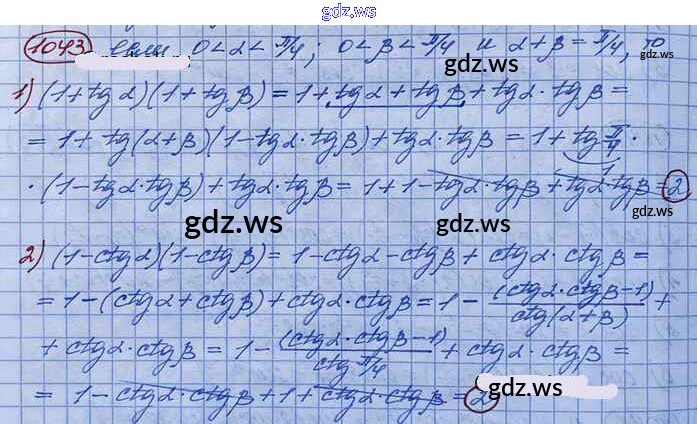 gdz.ws
1043 если 0<α<π/4; 0<β<π/4 и α+β=π/4, то
1) (1+tgα)(1+tgβ)=1+tgα+tgβ+tgα·tgβ=
=1+tg(α+β)(1-tgα·tgβ)+tgα·tgβ=1+tgπ/4·
1
·(1-tgα·tgβ)+tgα·tgβ=1+1-tgα·tgβ+tgα·tgβ=2
gdz.ws gdz.ws gdz.ws
2) (1-ctgα)(1-ctgβ)=1-ctgα-ctgβ+ctgα·ctgβ=
=1-(ctgα+ctgβ)+ctgα·ctgβ=1-(ctgα·ctgβ-1)/ctg(α+β)+
+ctgα·ctgβ=1-(ctgα·ctgβ-1)/ctgπ/4+ctgα·ctgβ=
=1-ctgα·ctgβ+1+ctgα·ctgβ=2
gdz.ws